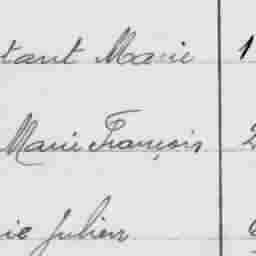 tant Marie 1
Marie François 2
ie Julien